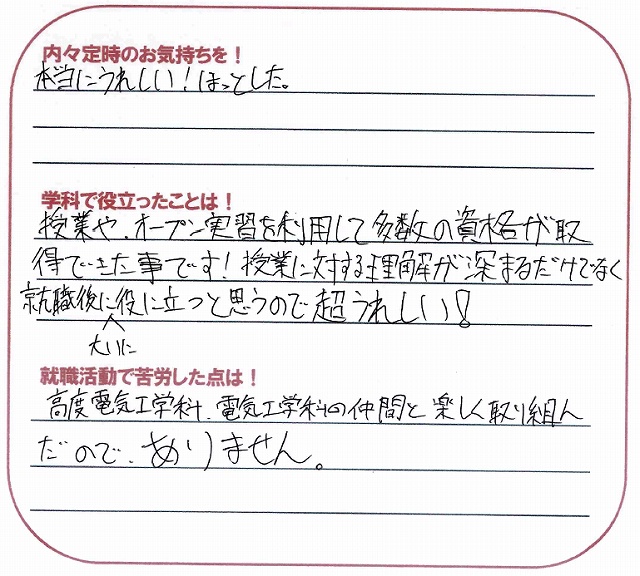 内々定時のお気持ちを！
本当にうれしい！ほっとした。
学科で役立ったことは！
授業や、オープン実習を利用して多数の資格が取
得できた事です！授業に対する理解が深まるだけでなく
就職後に役に立つと思うので超うれしい！
大いに
就職活動で苦労した点は！
高度電気工学科、電気工学科の仲間と楽しく取り組ん
だので、ありません。